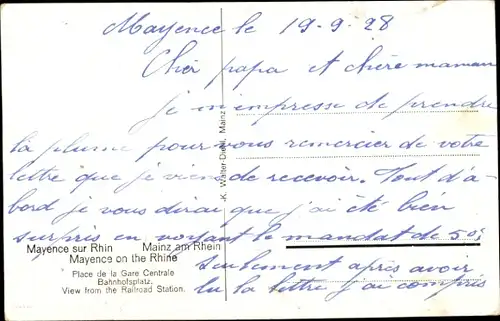 Mayence le 19-9-28
Cher papa et chère maman
je m'empresse de prendre
la plume pour vous remercier de votre
lettre que je viens de recevoir. Tout d'a-
bord je vous dirai que j'ai été bien
surpris en voyant le mandat de 50f
seulement après avoir
lu la lettre j'ai compris
Mayence sur Rhin Mainz am Rhein
Mayence on the Rhine
Place de la Gare Centrale
Bahnhofsplatz.
View from the Railroad Station.
K. Walter- Mainz